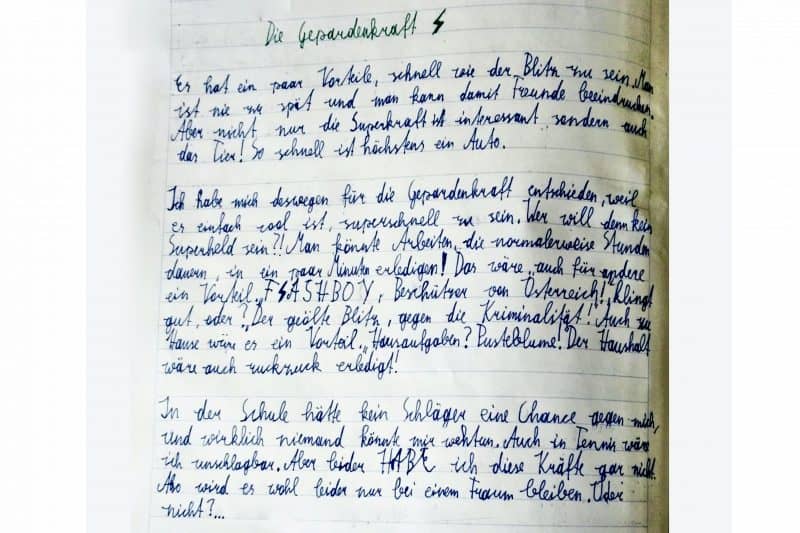 Die Gepardenkraft
Es hat ein paar Vorteile, schnell wie der Blitz zu sein. Man
ist nie zu spät und man kann damit Freunde beeindrucken.
Aber nicht nur die Superkraft ist interessant, sondern auch
das Tier! So schnell ist höchstens ein Auto.
Ich habe mich deswegen für die Gepardenkraft entschieden, weil
es einfach cool ist, superschnell zu sein. Wer will denn kein
Superheld sein?! Man könnte Arbeiten, die normalerweise Stunden
dauern, in ein paar Minuten erledigen! Das wäre auch für andere
ein Vorteil. „FLASHBOY, Beschützer von Österreich!" Klingt
gut, oder? „Der geölte Blitz, gegen die Kriminalität!" Auch zu
Hause wäre es ein Vorteil. „Hausaufgaben? Pusteblume! Der Haushalt
wäre auch ruckzuck erledigt!
In der Schule hätte kein Schläger eine Chance gegen mich,
und wirklich niemand könnte mir wehtun. Auch in Tennis wäre
ich unschlagbar. Aber leider HABE ich diese Kräfte gar nicht.
Also wird es wohl leider nur bei einem Traum bleiben. Oder
nicht?...